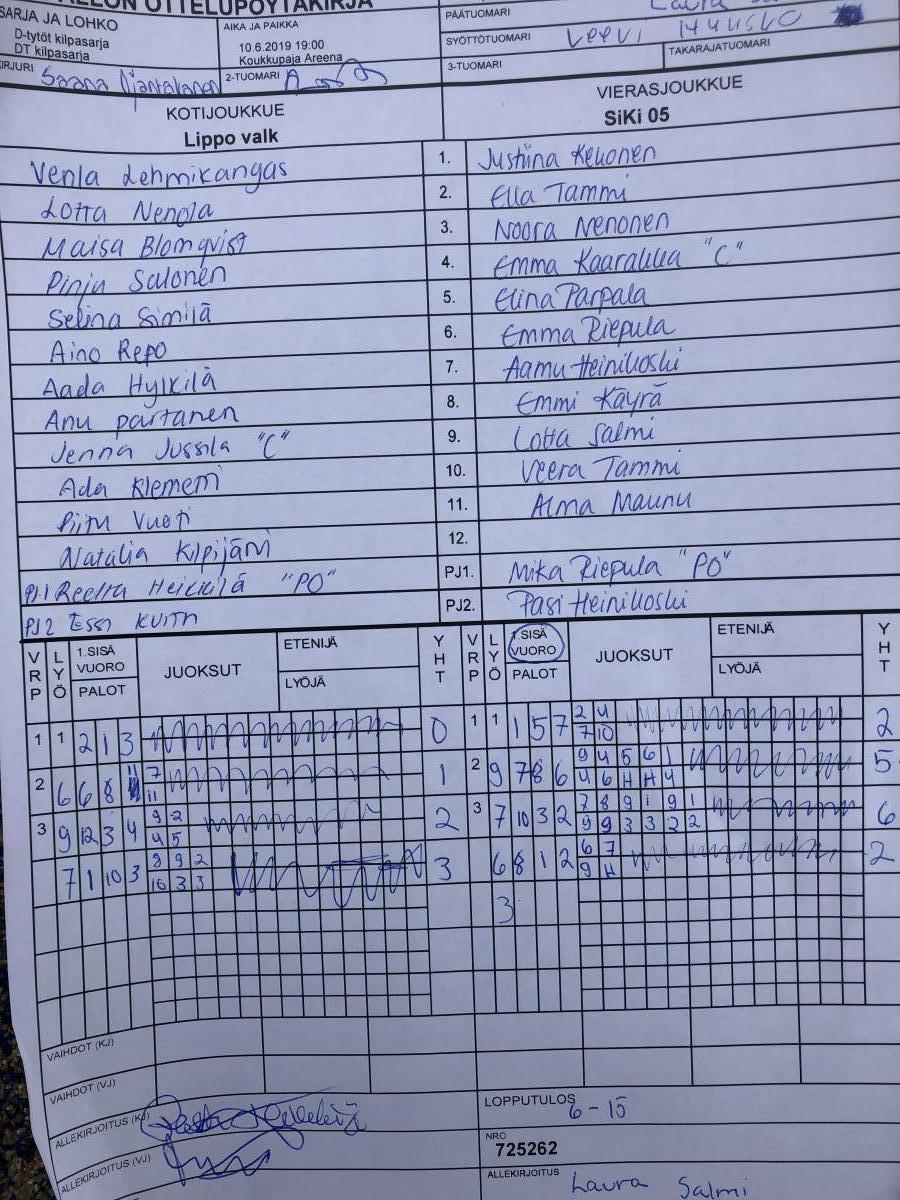 OTTELUPÖYTÄKIRJA
SARJA JA LOHKO
D-tytöt kilpasarja
DT kilpasarja
AIKA JA PAIKKA
10.6.2019 19:00
Koukkupaja Areena
PÄÄTUOMARI Laura
SYÖTTÖTUOMARI Veevi
TAKARAJATUOMARI
KIRJURI Saana
2-TUOMARI
3-TUOMARI
KOTIJOUKKUE
Lippo valk
VIERASJOUKKUE
SiKi 05
Venla Lehmikangas 1. Justiina Kekonen
Lotta Nenola 2. Ella Tammi
Maisa Blomqvist 3. Noora Nenonen
Pinju Salonen 4. Emma Kaarakka "C"
Selina Similä 5. Elina Parpala
Aino Repo 6. Emma Riepula
Aada Hylkilä 7. Aamu Heinikoski
Anu partanen 8. Emmi Käyrä
Jenna Jussila "C" 9. Lotta Salmi
Ada Klemetti 10. Veera Tammi
Piitu Vuoti 11. Alma Maunu
Natalia Kilpijärvi 12.
PJ.1 Reetta Heikkilä "PO" PJ1. Mika Riepula "PO"
PJ2 Essi PJ2. Pasi Heinikoski
VRP LYÖ 1.SISÄ VUORO PALOT JUOKSUT ETENIJÄ LYÖJÄ YHT VRP LYÖ 1.SISÄ VUORO PALOT JUOKSUT ETENIJÄ LYÖJÄ YHT
1 1 2 1 3 0 1 1 1 5 7 2 4 2
7 10
2 6 6 8 11 7 1 2 9 7 8 6 9 4 5 6 1 5
11 4 6 H H 4
3 9 12 3 4 9 2 2 3 7 10 3 2 7 8 9 1 9 1 6
4 5 9 9 3 3 2 2
7 1 10 3 8 9 2 3 6 8 1 2 6 7 2
10 3 3 9 H
3
VAIHDOT (KJ)
VAIHDOT (VJ)
ALLEKIRJOITUS (KJ)
LOPPUTULOS
6-15
ALLEKIRJOITUS (VJ)
NRO
725262
ALLEKIRJOITUS
Laura Salmi